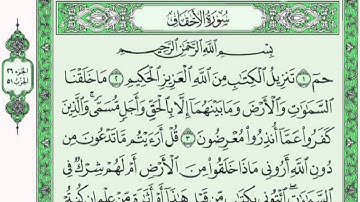 سُورَةُ الأَحْقَافِ
بِسْمِ اللَّهِ الرَّحْمَٰنِ الرَّحِيمِ
حمٓ ١ تَنزِيلُ الْكِتَٰبِ مِنَ اللَّهِ الْعَزِيزِ الْحَكِيمِ ٢ مَا خَلَقْنَا
السَّمَٰوَٰتِ وَالْأَرْضَ وَمَا بَيْنَهُمَآ إِلَّا بِالْحَقِّ وَأَجَلٍ مُّسَمًّى ۚ وَالَّذِينَ
كَفَرُوا۟ عَمَّآ أُنذِرُوا۟ مُعْرِضُونَ ٣ قُلْ أَرَءَيْتُم مَّا تَدْعُونَ مِن
دُونِ اللَّهِ أَرُونِى مَاذَا خَلَقُوا۟ مِنَ الْأَرْضِ أَمْ لَهُمْ شِرْكٌ فِى
السَّمَٰوَٰتِ ۖ ائْتُونِى بِكِتَٰبٍ مِّن قَبْلِ هَٰذَآ أَوْ أَثَٰرَةٍ مِّنْ عِلْمٍ إِن كُنتُمْ
الجزء ٢٦
الحزب ٥١